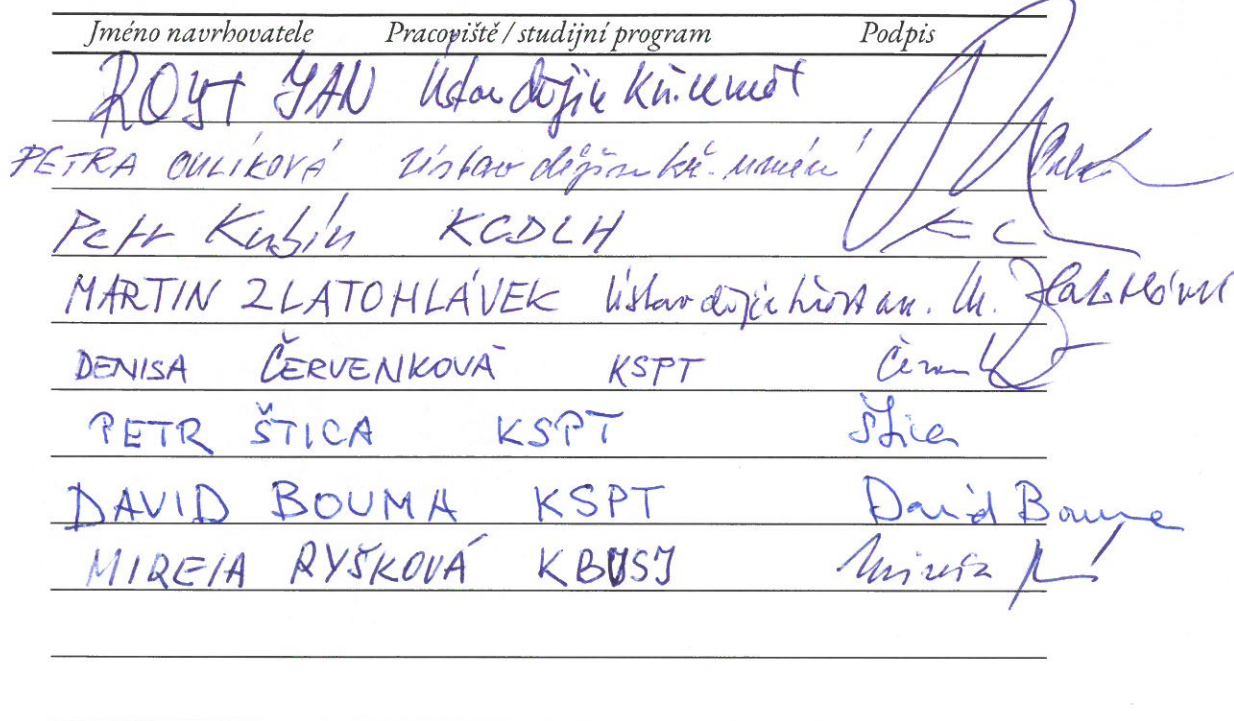 Jméno navrhovatele Pracoviště / studijní program Podpis
ROYT JAN Ústav dějin kř. umění
PETRA OULÍKOVÁ Ústav dějin kř. umění
Petr Kubín KCDLH
MARTIN ZLATOHLÁVEK Ústav dějin M. Zlatohlávek
DENISA ČERVENKOVÁ KSPT
PETR ŠTICA KSPT Štica
DAVID BOUMA KSPT David Bouma
MIREIA RYŠKOVÁ KBVSJ Mireia